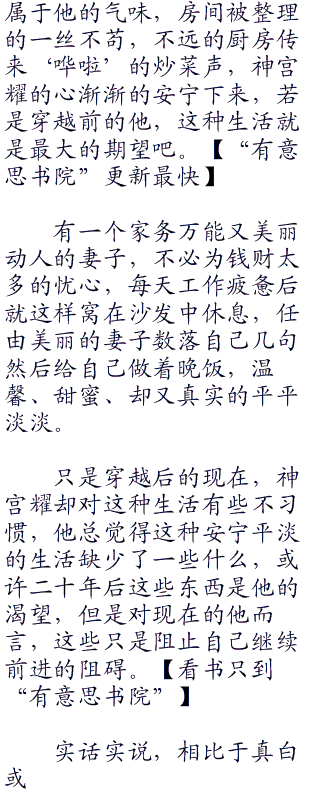 属于他的气味，房间被整理
的一丝不苟，不远的厨房传
来‘哗啦’的炒菜声，神宫
耀的心渐渐的安宁下来，若
是穿越前的他，这种生活就
是最大的期望吧。【“有意
思书院”更新最快】
有一个家务万能又美丽
动人的妻子，不必为钱财太
多的忧心，每天工作疲惫后
就这样窝在沙发中休息，任
由美丽的妻子数落自己几句
然后给自己做着晚饭，温
馨、甜蜜、却又真实的平平
淡淡。
只是穿越后的现在，神
宫耀却对这种生活有些不习
惯，他总觉得这种安宁平淡
的生活缺少了一些什么，或
许二十年后这些东西是他的
渴望，但是对现在的他而
言，这些只是阻止自己继续
前进的阻碍。【看书只到
“有意思书院”】
实话实说，相比于真白
或